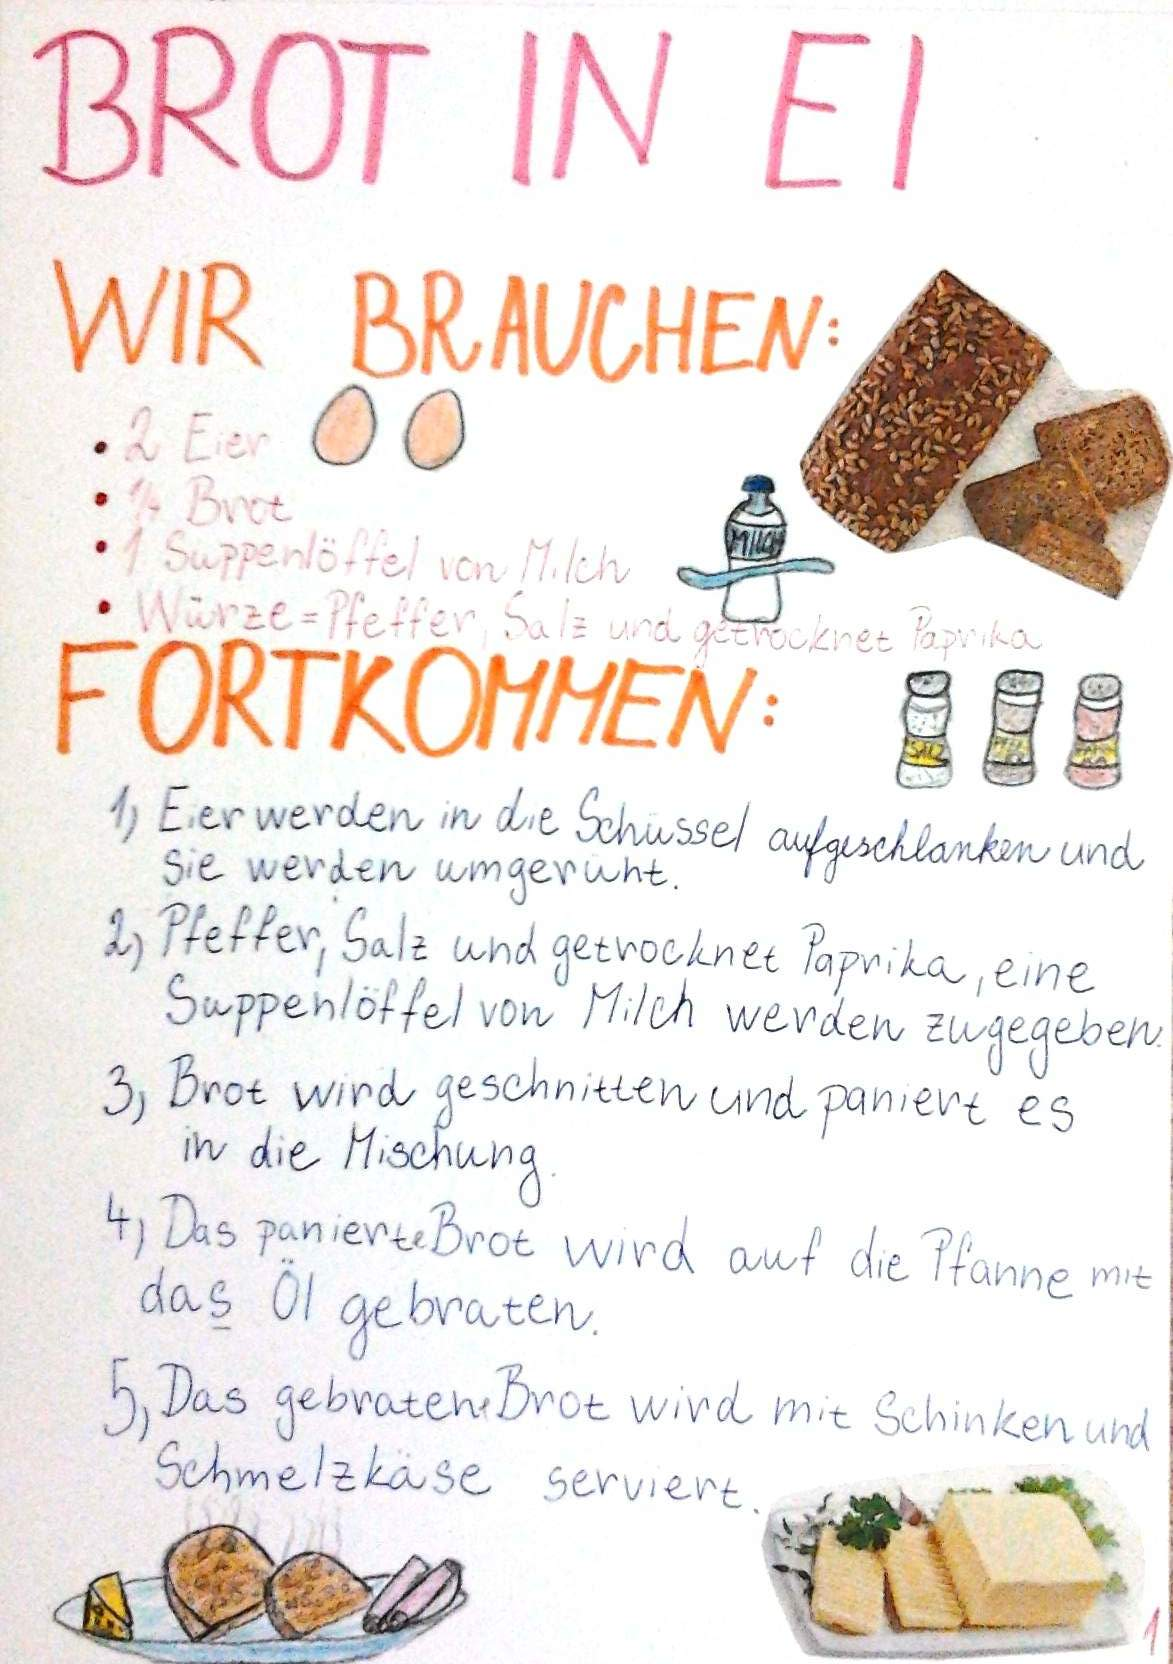 BROT IN EI
WIR BRAUCHEN:
• 2 Eier
• 1/4 Brot
• 1 Suppenlöffel von Milch
MILCH
• Würze = Pfeffer, Salz und getrocknet Paprika
FORTKOMMEN:
SALZ
1) Eier werden in die Schüssel aufgeschlanken und
sie werden umgerüht.
2) Pfeffer, Salz und getrocknet Paprika, eine
Suppenlöffel von Milch werden zugegeben.
3) Brot wird geschnitten und paniert es
in die Mischung.
4) Das panierte Brot wird auf die Pfanne mit
das Öl gebraten.
5) Das gebratene Brot wird mit Schinken und
Schmelzkäse serviert.
1